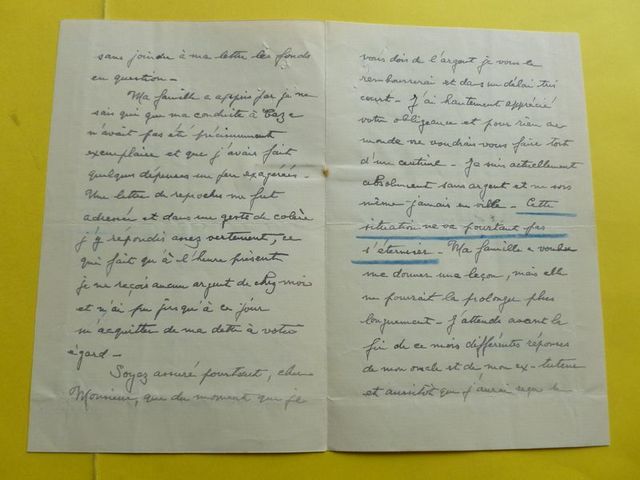 sans joindre à ma lettre les fonds
en question –
Ma famille a appris par je ne
sais qui que ma conduite à Taza
n'avait pas été précisément
exemplaire et que j'avais fait
quelques dépenses un peu exagérées –
Une lettre de reproches me fut
adressée et dans une geste de colère
j'y répondis assez vertement, ce
qui fait qu'à l'heure présente
je ne reçois aucun argent de chez moi
et n'ai pu jusqu'à ce jour
m'acquitter de ma dette à votre
égard –
Soyez assuré pourtant, cher
Monsieur, que du moment que je
vous dois de l'argent je vous le
rembourserai et dans un délai très
court – J'ai hautement apprécié
votre obligeance et pour rien au
monde ne voudrais vous faire tort
d'une centime – Je suis actuellement
absolument sans argent et ne sors
même jamais en ville – Cette
situation ne va pourtant pas
s'éterniser – Ma famille a voulu
me donner une leçon, mais elle
ne pourrait la prolonger plus
longuement – J'attends avant la
fin de ce mois différentes réponses
de mon oncle et de mon ex-tuteur
et aussitôt que j'aurai reçu le